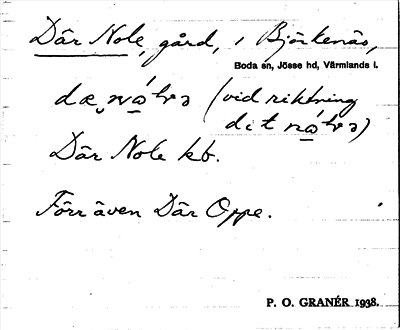 Där Nole, gård, i Björkenäs,
Boda sn, Jösse hd, Värmlands l.
(vid riktning
Där Nole kb.
Förr även Där Oppe.
P. O. GRANÉR 1938.